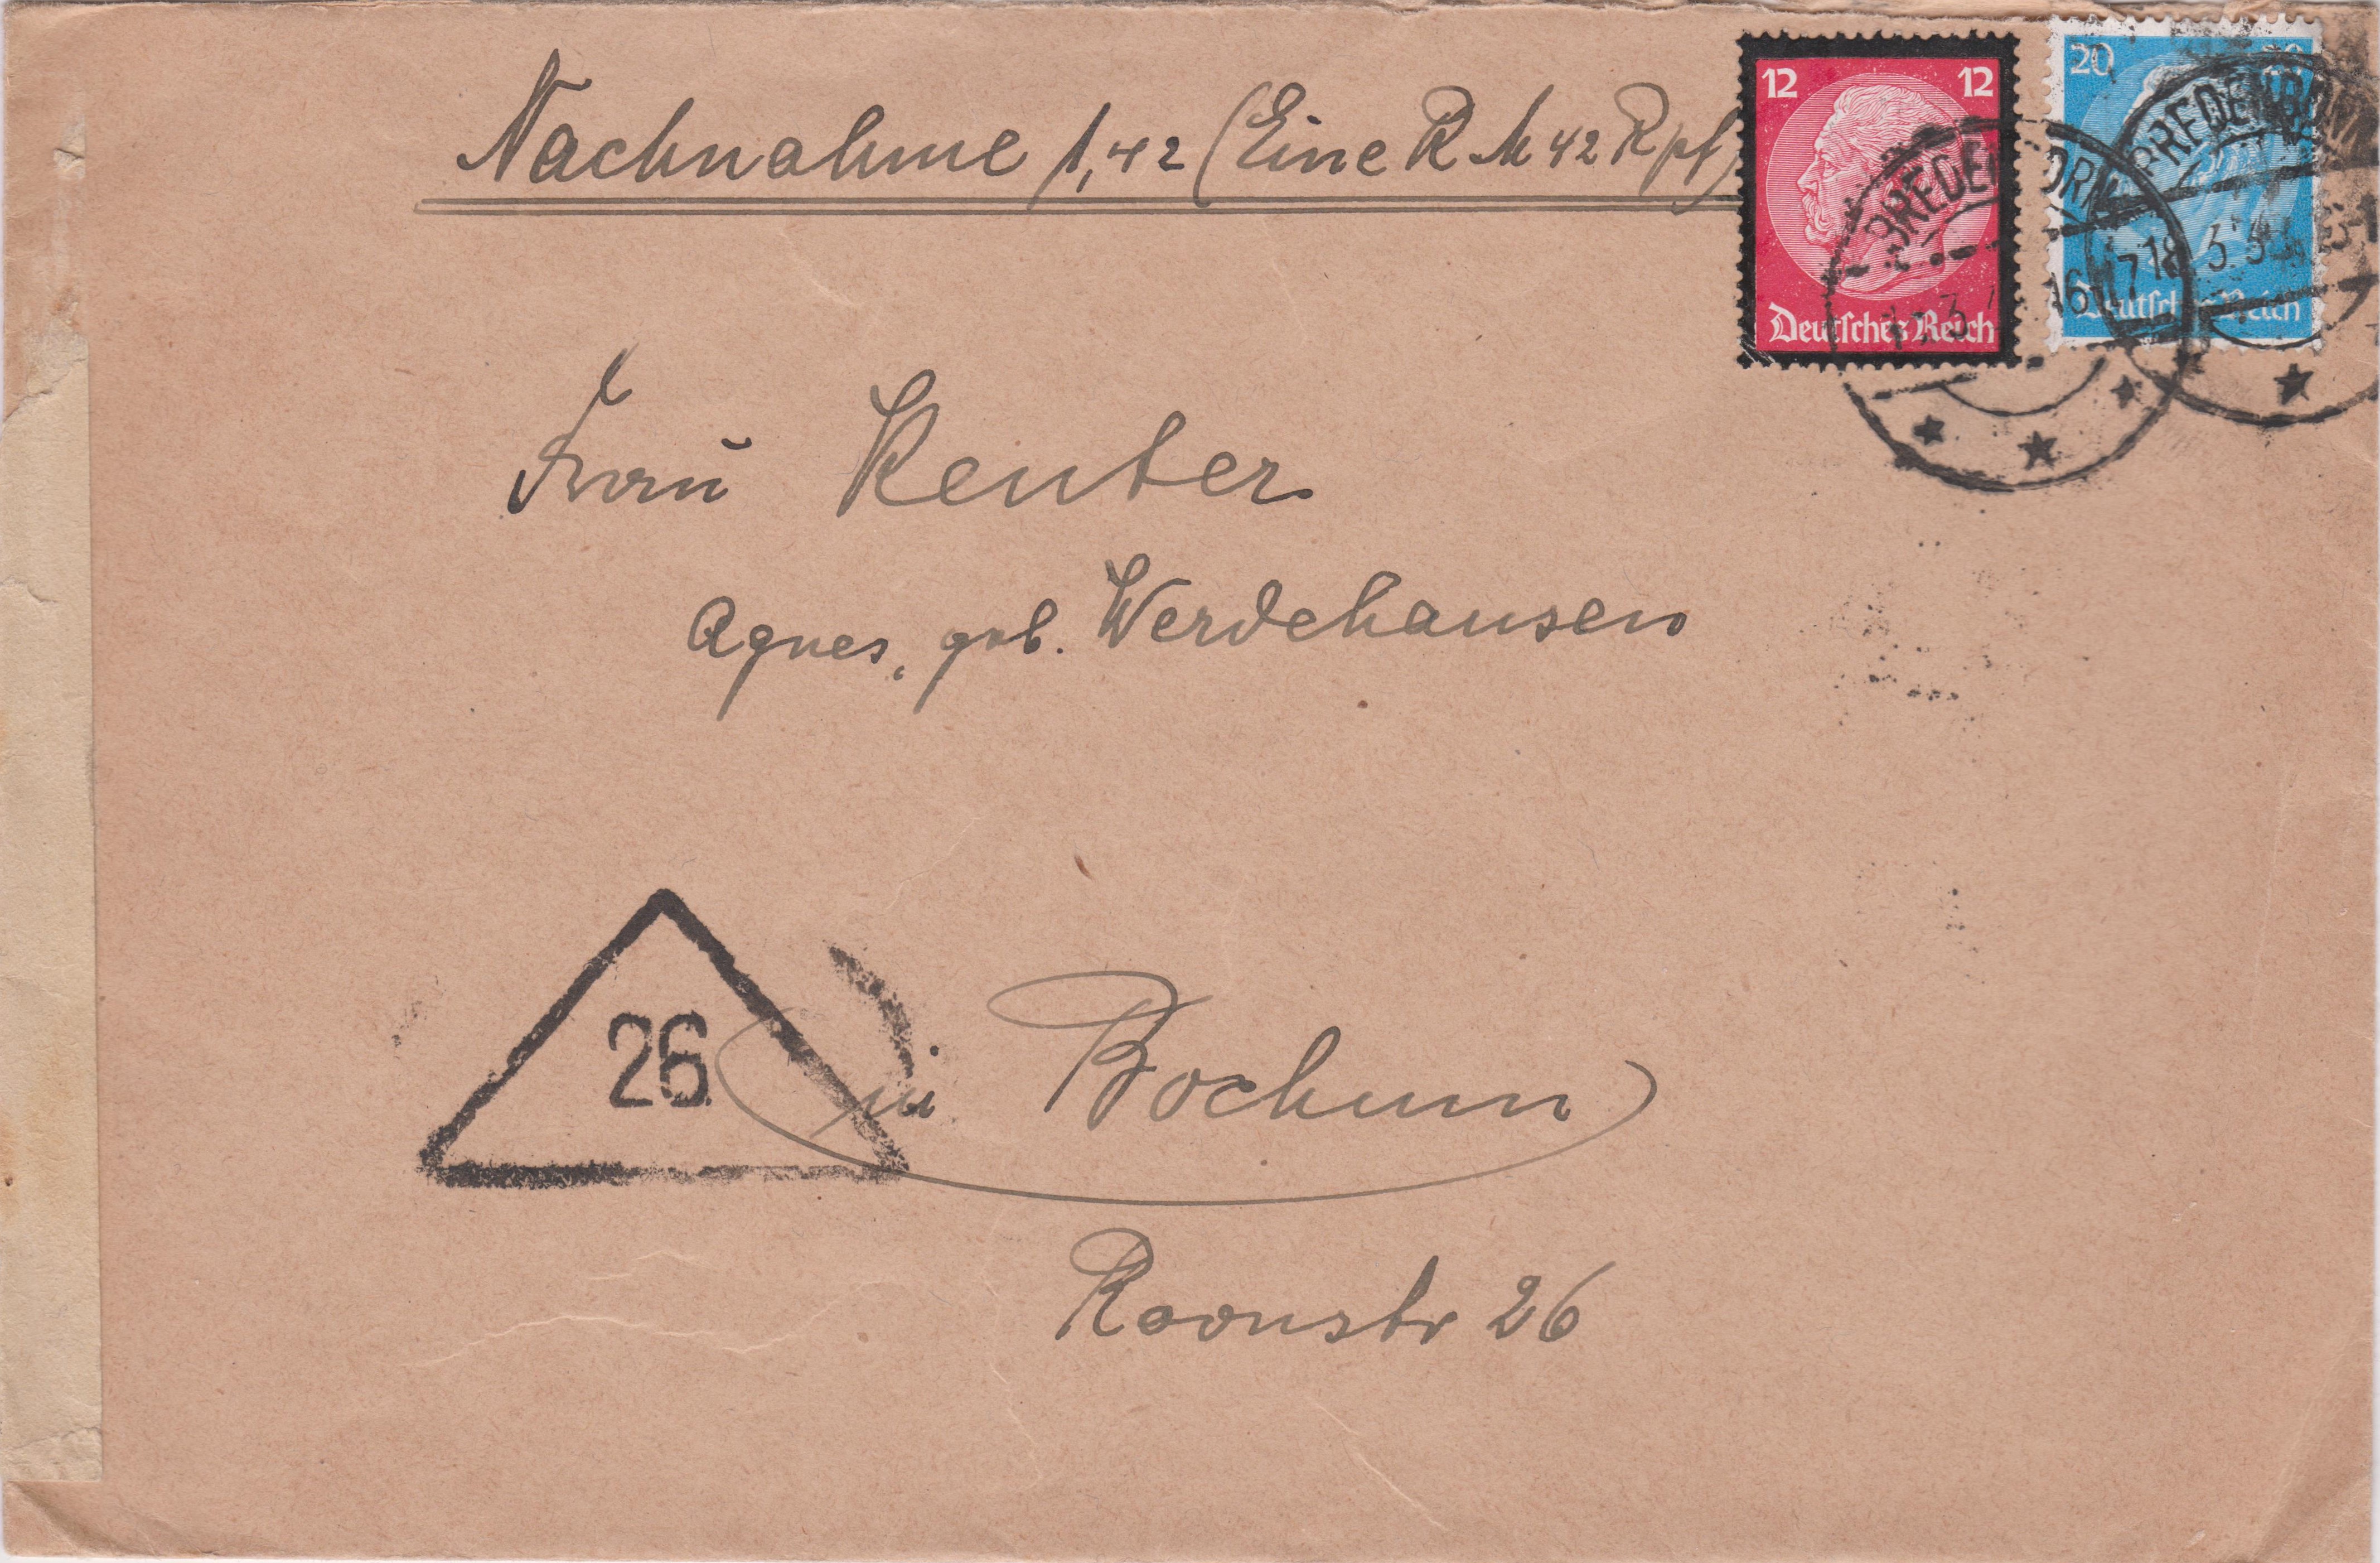 Nachnahme 1,42 (Eine RM 42 Rpf)
12 12
Deutsches Reich
20 20
Deutsches Reich
BREDENBORN
BREDENBORN
Frau Reuter
Agnes, geb. Werdehausen
26
in Bochum
Roonstr 26